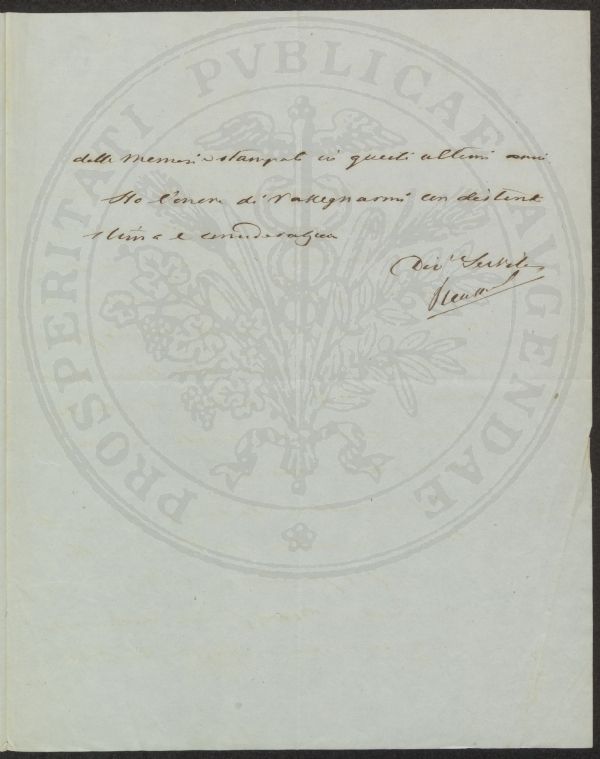 PROSPERITATI PVBLICAE AVGENDAE
delle memorie stampate in questi ultimi anni
Ho l'onore di rassegnarmi con distinta
stima e considerazione
Div.º Servitore